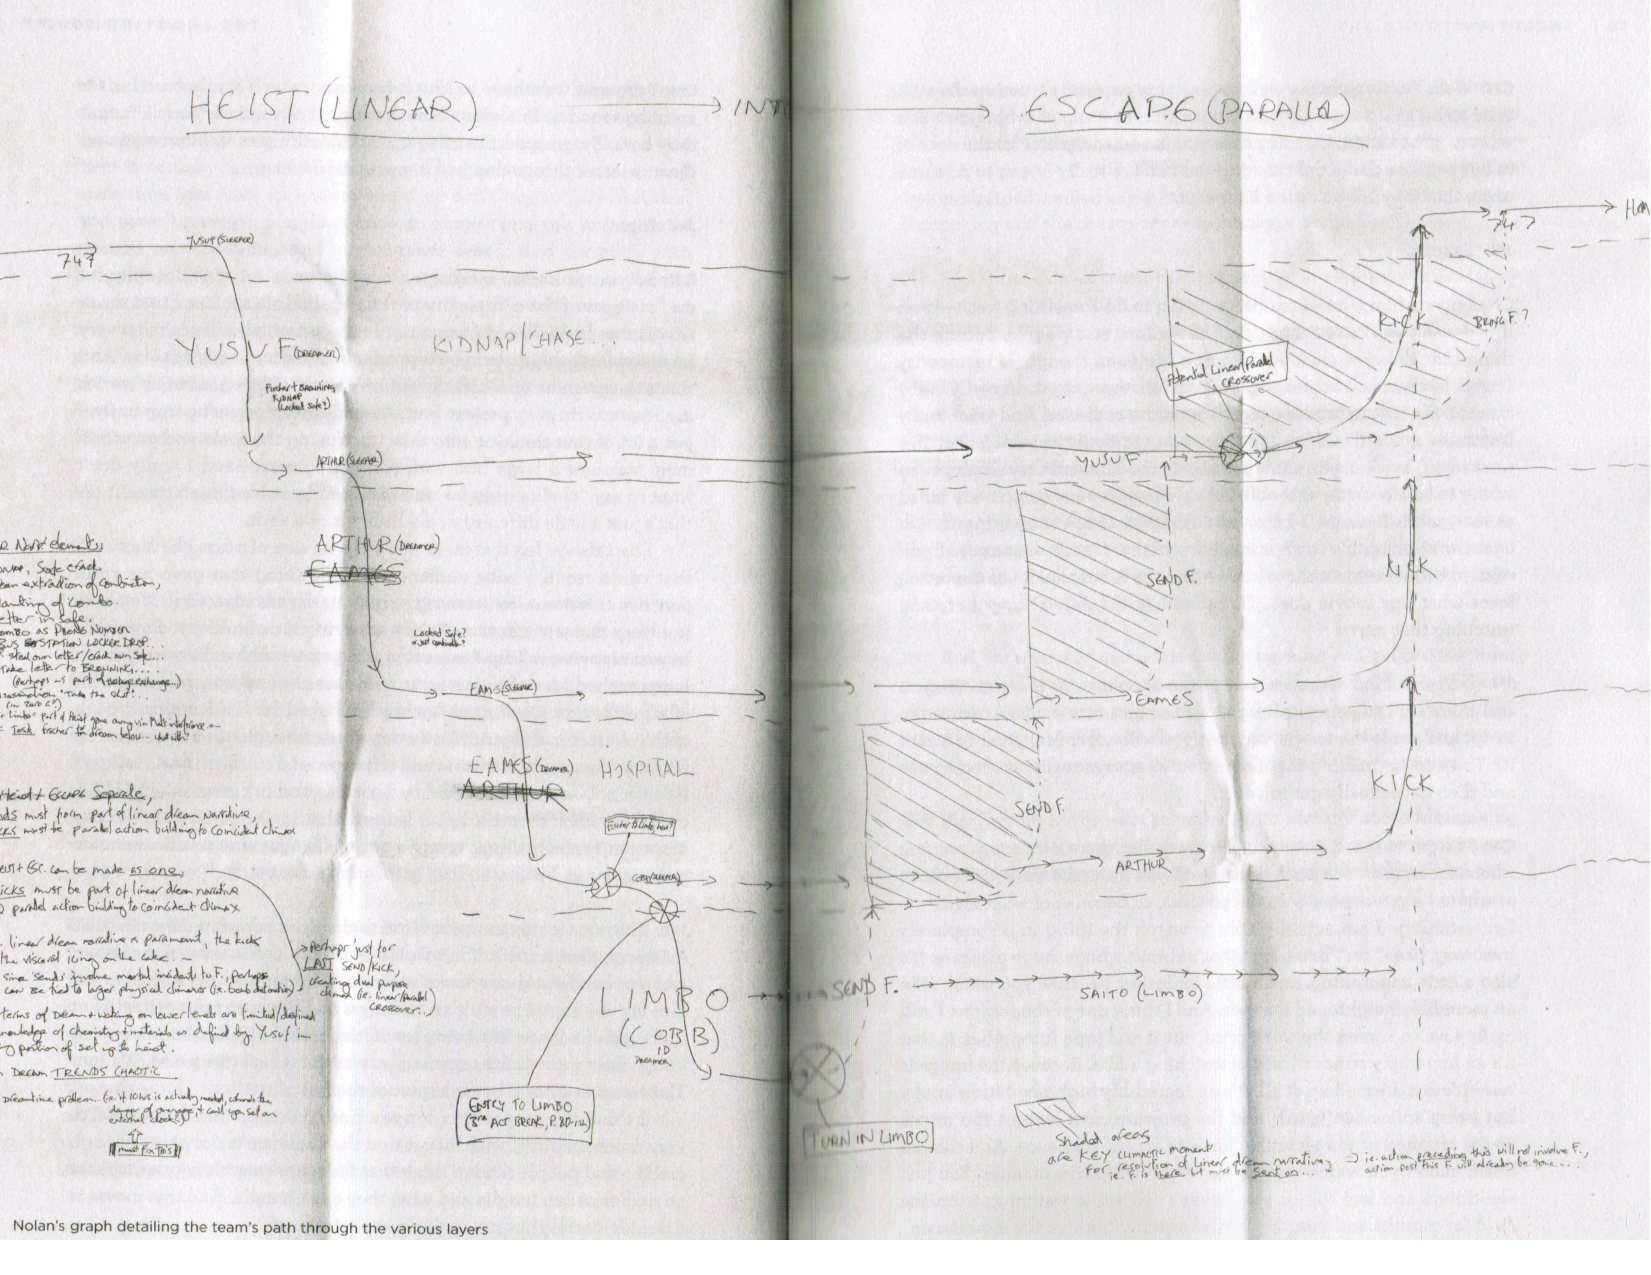 HEIST (LINEAR)
INTO
ESCAPE (PARALLEL)
747
YUSUF (SLEEPER)
747
HOM
YUSUF (DREAMER)
KIDNAP/CHASE...
Fischer + Browning
KIDNAP
(Locked Safe?)
KICK
BRING F.?
Potential Linear/Parallel
CROSSOVER
ARTHUR (SLEEPER)
YUSUF
ARTHUR (DREAMER)
EAMES
SEND F.
KICK
Locked Safe?
R Narr elements
NAP, Safe crack
ean extraction of combination,
lanting of combo
etter in safe.
ombo as PHONE NUMBER
BUS STATION LOCKER DROP...
steal own letter/crack own safe...
Take letter to BROWNING...
(Perhaps as part of exchange...)
'Take the shot'...
Limbo = part of Heist gone awry via Mal's interference
= Task Fischer to dream below... what with?
EAMES (SLEEPER)
EAMES
EAMES (DREAMER) HOSPITAL
ARTHUR
SEND F.
KICK
Heist + Escape Separate,
nds must form part of linear dream narrative,
icks must be parallel action building to coincident climax
Fischer to Limbo, here?
COBB (SLEEPER)
ARTHUR
eist + Esc. can be made as one,
icks must be part of linear dream narrative
parallel action building to coincident climax
linear dream narrative is paramount, the kicks
the visceral icing on the cake. –
since 'sends' involve mortal incidents to F., perhaps
can be tied to larger physical climaxes (i.e. bomb detonation)
Perhaps just for
LAST SEND/KICK,
creating dual purpose
climax (i.e. linear/parallel
CROSSOVER...)
terms of Dream + waking on lower levels are limited/defined
nowledge of chemistry + materials as defined by Yusuf –
g portion of set up to heist.
DREAM TRENDS CHAOTIC
Dreamtime problem... (i.e. if 10 hrs is actually needed, where's the
danger of + can't you set an
external clock?)
must FIX THIS
LIMBO
(COBB)
DREAMER
SEND F.
SAITO (LIMBO)
ENTRY TO LIMBO
(3RD ACT BREAK, P. 80-ish)
TURN IN LIMBO
Shaded areas
are KEY climactic moment
for resolution of linear dream narrative,
i.e. F. is there but must be sent on...
i.e. action preceding this will not involve F.,
action post this F. will already be gone...
Nolan's graph detailing the team's path through the various layers